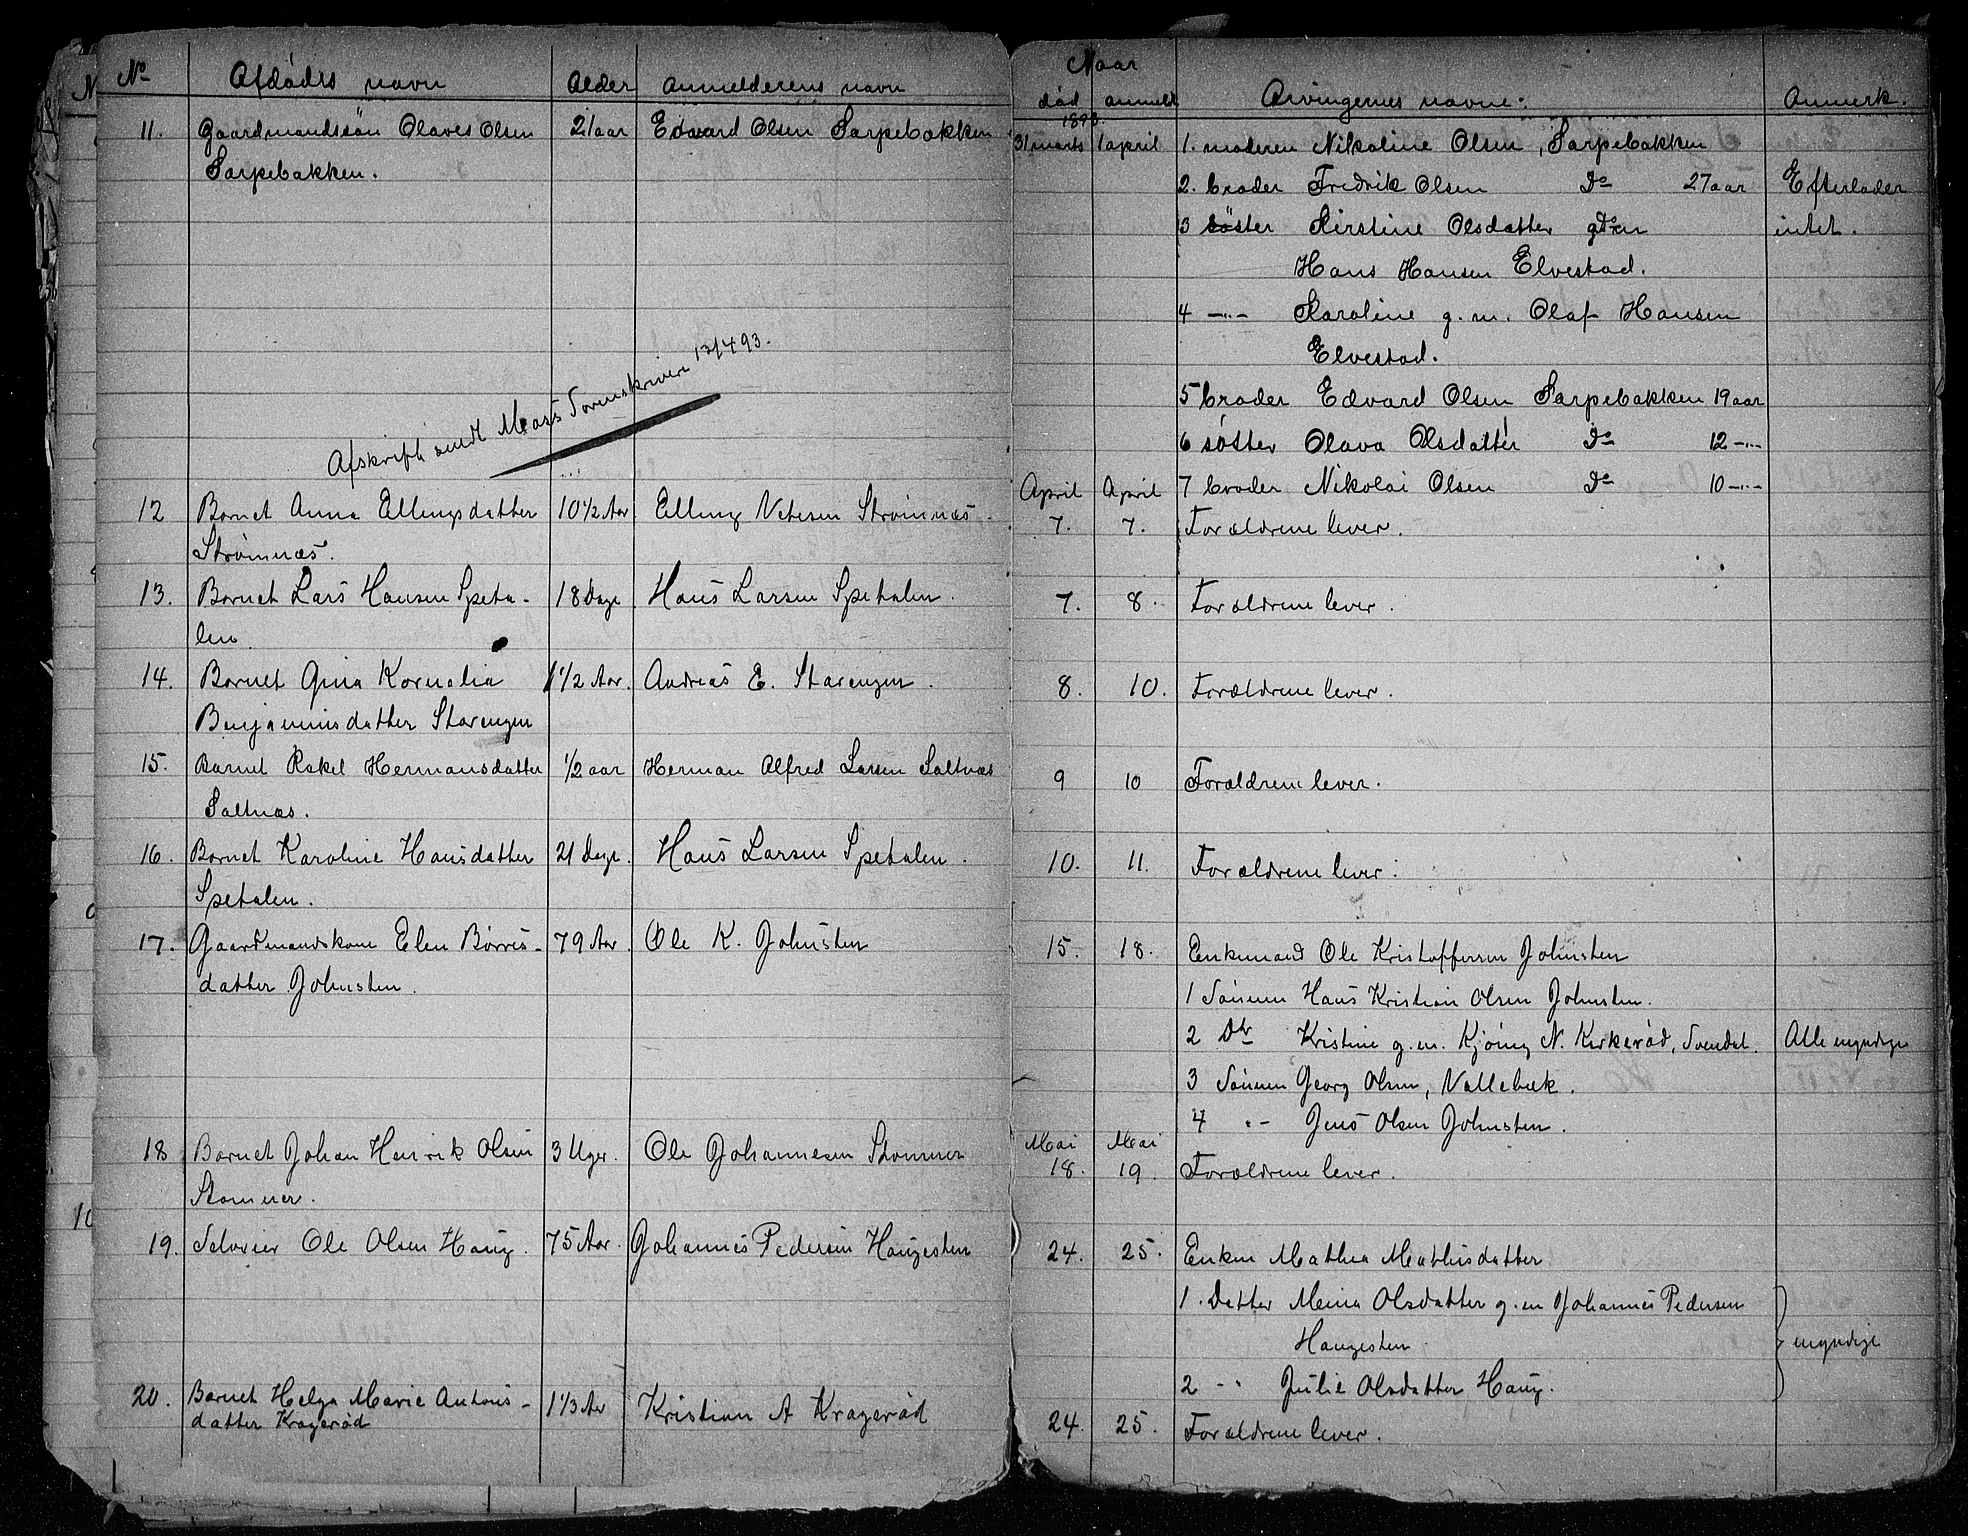 No Afdødes navn Alder Anmelderens navn
11. Gaardmandssön Olaves Olsen 21 aar Edvard Olsen Sarpebakken
Sarpebakken.
Afskrift sendt Moss Sorenskriveri 13/4 93.
12 Barnet Anna Ellingsdatter 10 1/2 Aar Elling Strømnæs.
Strømnæs.
13. Barnet Lars Hansen Speta- 18 Dage Hans Larsen Spetalen.
len
14. Barnet Gina Kornelia 1 1/2 Aar. Andreas E. Starengen.
Benjaminsdatter Starengen
15. Barnet Rakel Hermansdatter 1/2 aar Herman Alfred Larsen Saltnæs
Saltnæs.
16. Barnet Karoline Hansdatter 21 Dage. Hans Larsen Spetalen.
Spetalen.
17. Gaardmandskone Elen Børres- 79 Aar. Ole K. Johnsten
datter Johnsten.
18 Barnet Johan Henrik Olsen 3 Uger. Ole Johannesen Stommer
Stommer.
19. Selveier Ole Olsen Haug. 75 Aar. Johannes Pedersen Haugesten
20. Barnet Helga Marie Antons- 1 1/3 Aar Kristian A Kragerød
datter Kragerød
Naar
død anmeldt Arvingernes navne: Anmerk.
1893.
31 marts 1 april 1. moderen Nikoline Olsen, Sarpebakken
2. broder Fredrik Olsen Do 27 aar Efterlader
3 söster Kirstine Olsdatter g. m intet.
Hans Hansen Elvestad.
4 -"- Karoline g. m. Olaf Hansen
Elvestad.
5 broder Edvard Olsen Sarpebakken 19 aar
6 söster Olava Olsdatter Do 12 -"-
April April 7 broder Nikolai Olsen Do 10 -"-
7. 7. Forældrene lever.
7. 8. Forældrene lever.
8. 10. Forældrene lever.
9 10 Forældrene lever.
10. 11. Forældrene lever.
15. 18. Enkemand Ole Kristoffersen Johnsten
1 Sönnen Hans Kristian Olsen Johnsten.
2 Dtr Kristine g. m. Kjöning N. Kirkeröd, Svendal. Alle myndige
3 Sönnen Georg Olsen, Vallebæk.
4 "- Jens Olsen Johnsten.
Mai Mai
18. 19. Forældrene lever.
24. 25. Enken Mathea Mathisdatter
1. Datter Mina Olsdatter g. m Johannes Pedersen
Haugesten myndige
2 - " Julie Olsdatter Haug.
24. 25. Forældrene lever.